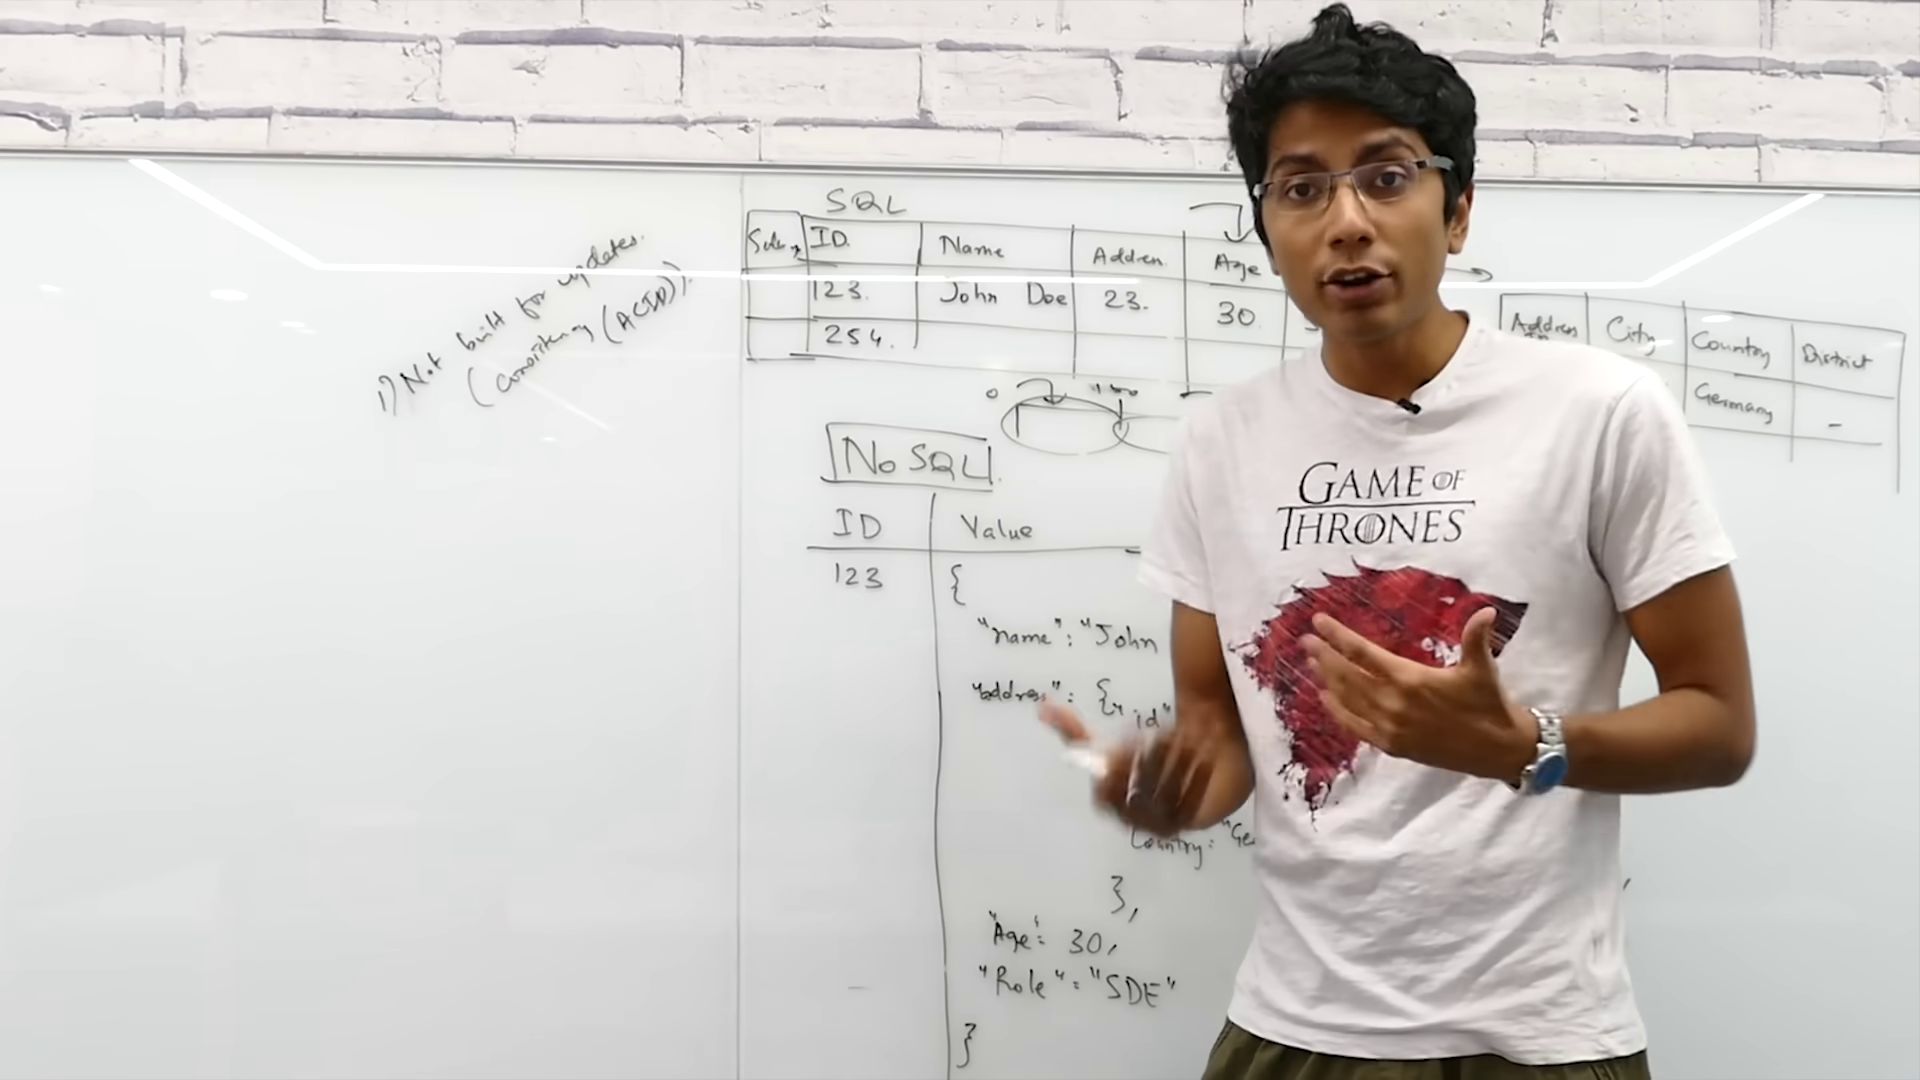 1) Not built for updates.
(consistency (ACID)).
SQL
ID. Name Address Age
123. John Doe 23. 30.
254.
Address City Country District
Germany -
0
NoSQL
ID Value
123 {
"name": "John
"address": { "id"
Country: "Ge
},
"Age": 30,
"Role": "SDE"
}
GAME OF
THRONES